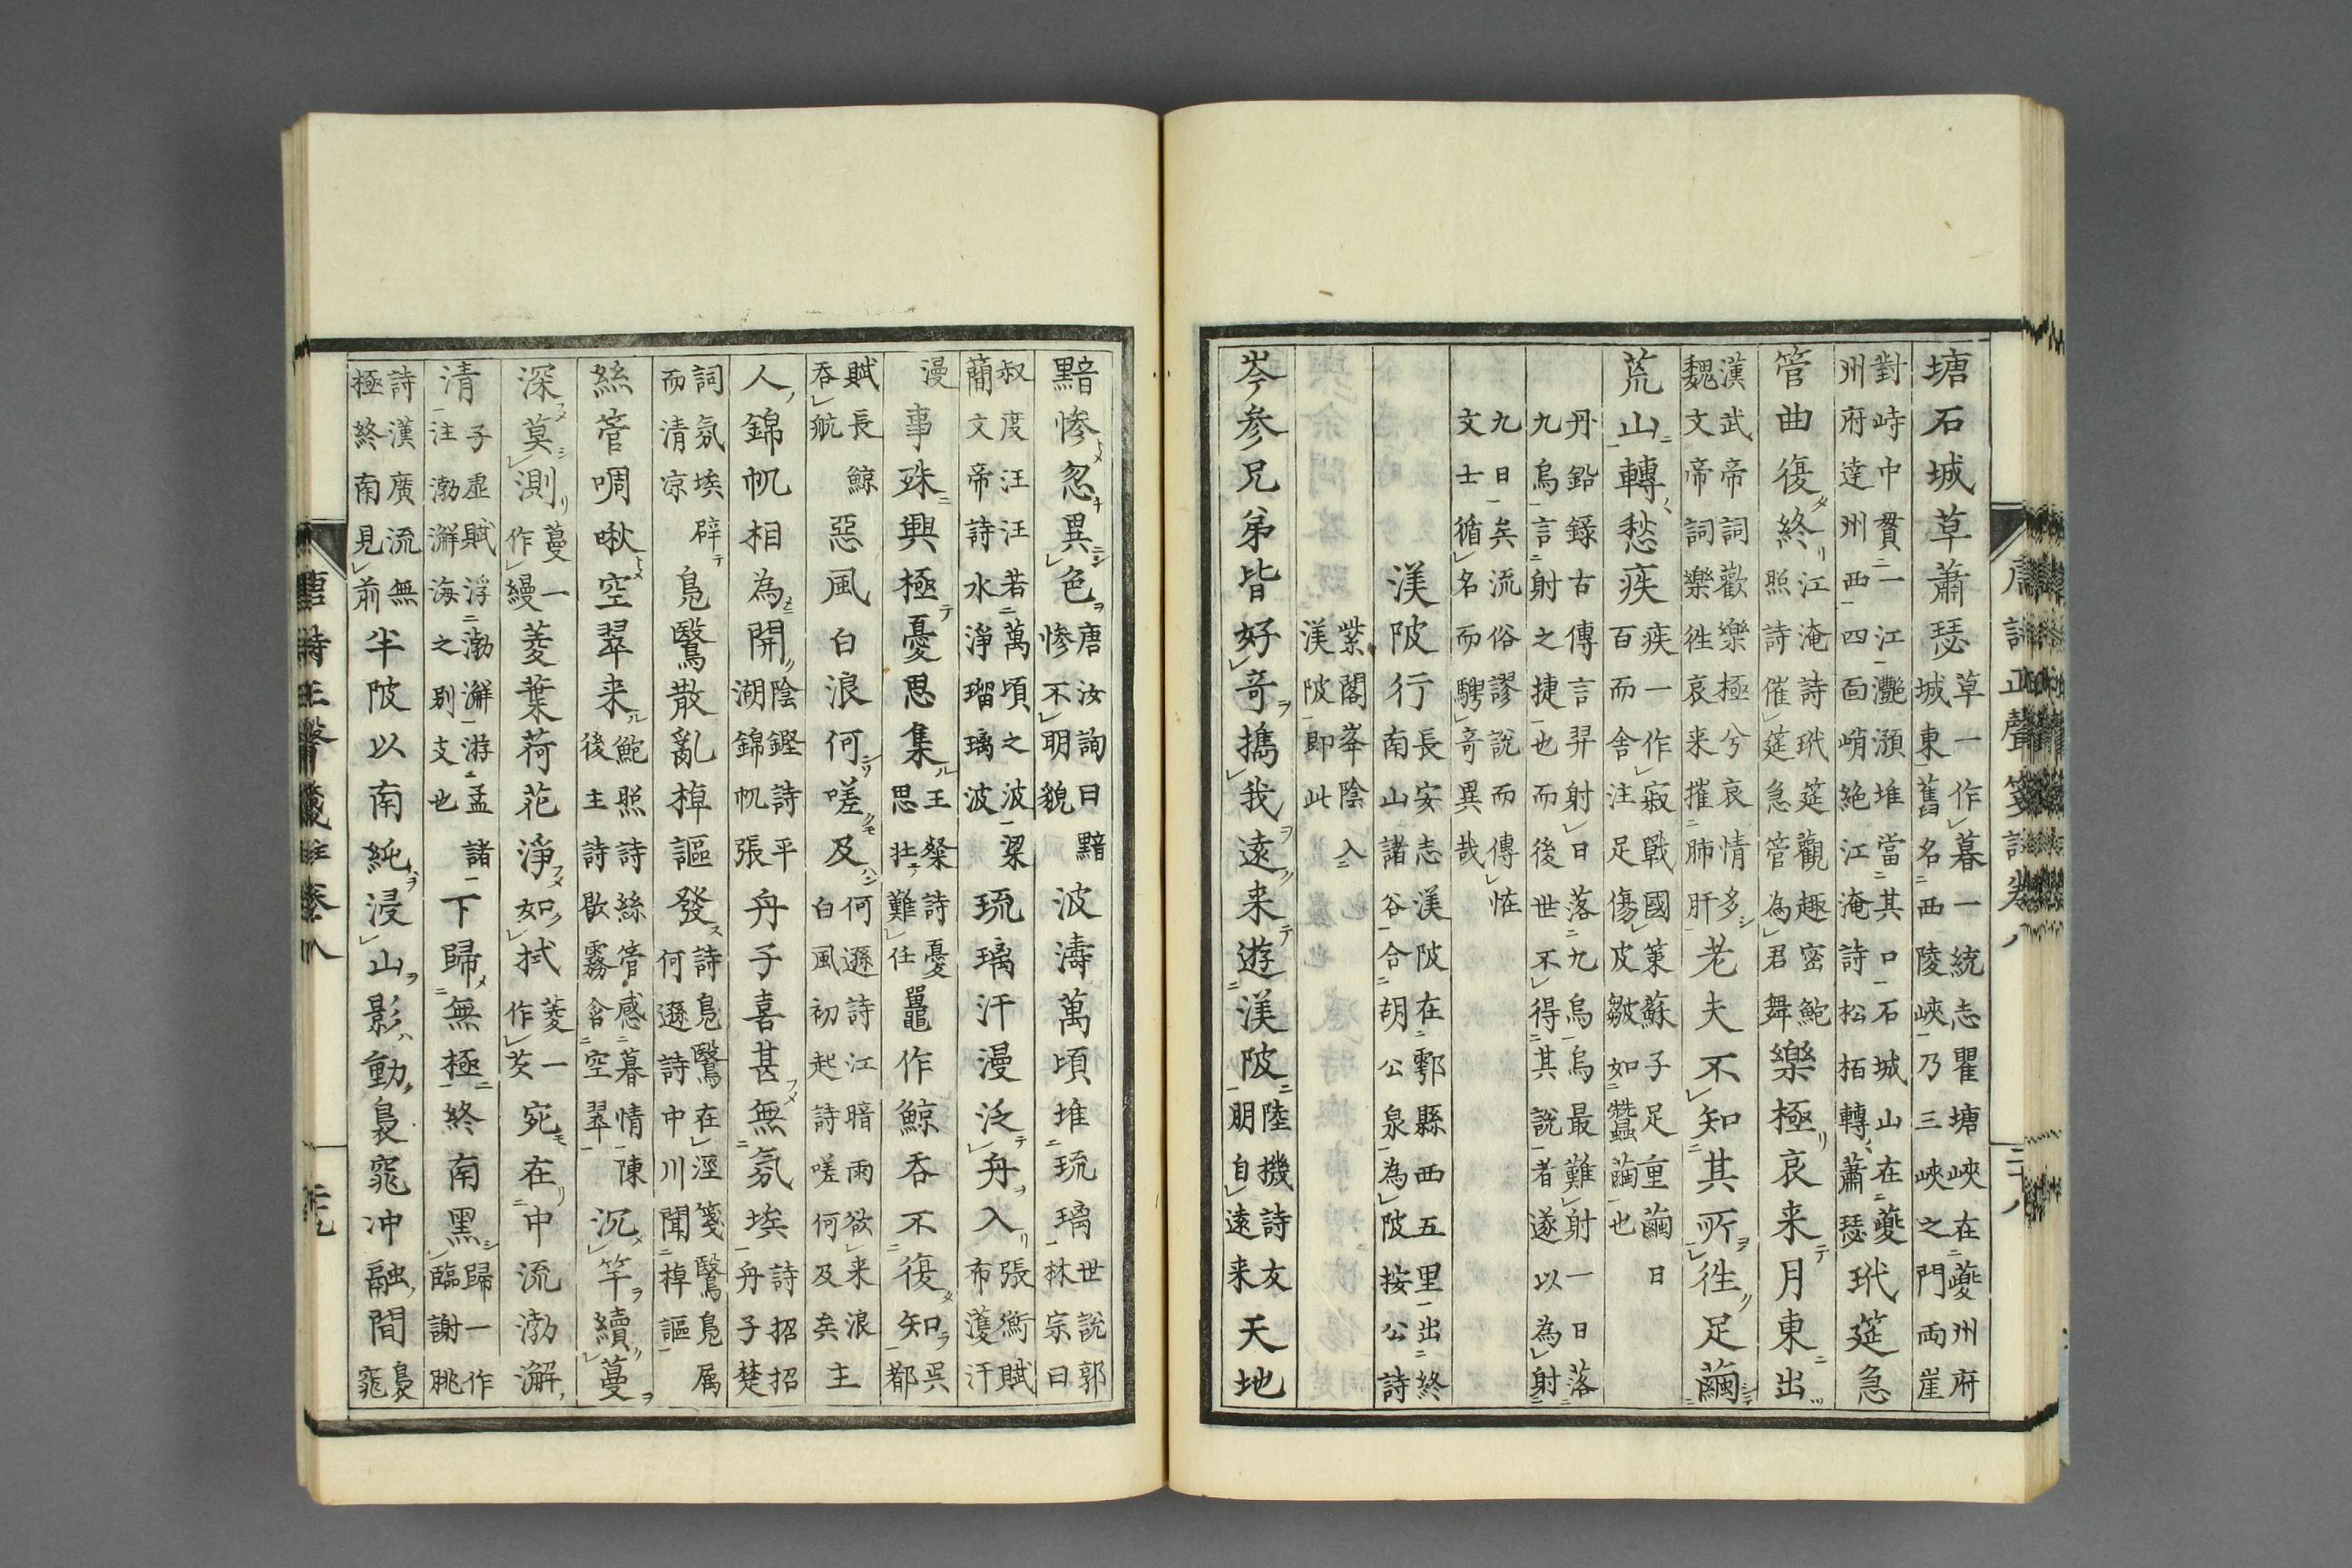 塘石城草蕭瑟草一作暮一統志瞿塘峽在夔州府城東舊名西陵峽乃三峽之門両崖
對峙中貫一江灔澦堆當其口石城山在夔州府達州西四面峭絶江淹詩松栢轉蕭瑟玳筵急
管曲復終江淹詩玳筵觀趣密鮑照詩催筵急管為君舞樂極哀来月東出
漢武帝詞歡樂極兮哀情多魏文帝詞樂徃哀来摧肺肝老夫不知其所徃足繭
荒山轉愁疾疾一作寂戰國策蘇子足重繭日百而舍注足傷皮皺如蠶繭也
丹鉛録古傳言羿射日落九烏烏最難射一日落九烏言射之捷也而後世不得其說者遂以為射
九日矣流俗謬說而傳恠文士循名而騁奇異哉
渼陂行長安志渼陂在鄠縣西五里出終南山諸谷合胡公泉為陂按公詩
紫閣峯陰入渼陂即此
岑参兄弟皆好奇擕我遠来遊渼陂陸機詩友朋自遠来天地
唐詩正聲箋註卷八 三十八
黯惨忽異色唐汝詢曰黯惨不明貌波濤萬頃堆琉璃世說郭林宗曰
叔度汪汪若萬頃之波梁蕳文帝詩水淨瑠璃波琉璃汗漫泛舟入張衡賦布濩汗
漫事殊興極憂思集王粲詩憂思壯難任鼉作鯨吞不復知吳都
賦長鯨吞航惡風白浪何嗟及何遜詩江暗雨欲来浪白風初起詩嗟何及矣主
人錦帆相為開陰鏗詩平湖錦帆張舟子喜甚無氛埃詩招招舟子楚
詞氛埃辟而清凉鳧鷖散亂棹謳發詩鳧鷖在涇箋鷖鳧属何遜詩中川聞棹謳
絲管啁啾空翠来鮑照詩絲管感暮情陳後主詩歇霧含空翠沉竿續蔓
深莫測蔓一作縵菱葉荷花淨如拭菱一作芡宛在中流渤澥
清子虛賦浮渤澥游孟諸注渤澥海之别支也下歸無極終南黑歸一作臨謝朓
詩漢廣流無極終南見前半陂以南純浸山影動裊窕冲融間裊窕
唐詩正聲箋註卷八